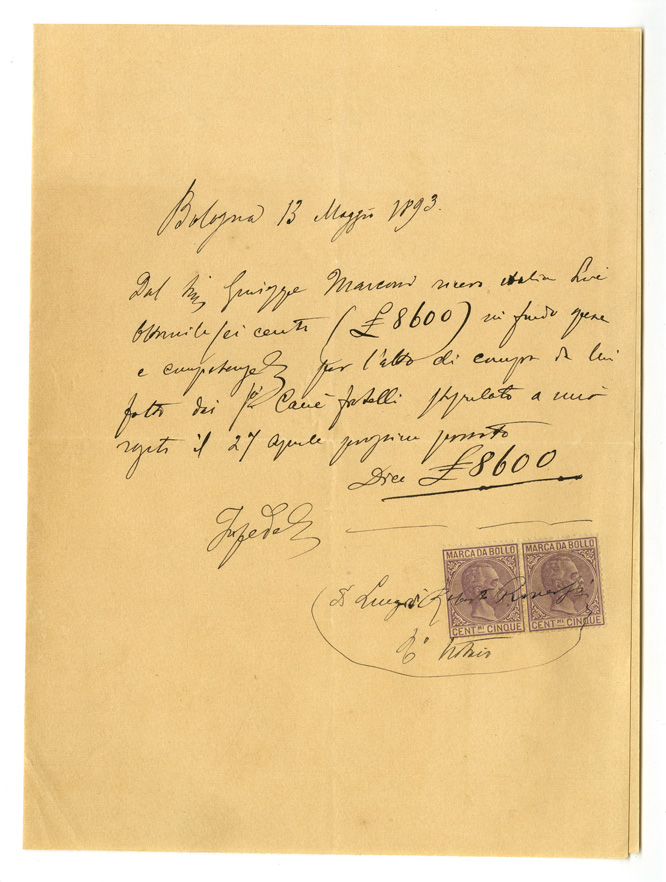 Bologna 13 Maggio 1893.
Dal Sig Giuseppe Marconi ricevo italia Lire
Ottomila seicento (£8600) in fondo spese
e competenze per l'atto di compra da lui
fatto dai Cavé fratelli stipulato a mio
rogito il 27 aprile prossimo passato
Dico £8600
In fede
MARCA DA BOLLO
MARCA DA BOLLO
D Luigi
CENT.MI CINQUE
CENT.MI CINQUE
Notaio